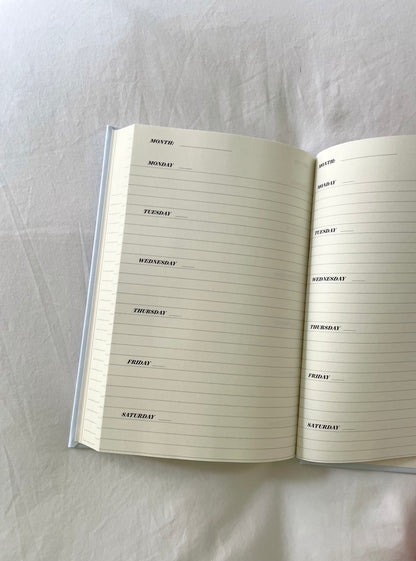 MONTH:
MONDAY
TUESDAY
WEDNESDAY
THURSDAY
FRIDAY
SATURDAY
MONTH:
MONDAY
TUESDAY
WEDNESDAY
THURSDAY
FRIDAY
SATURDAY